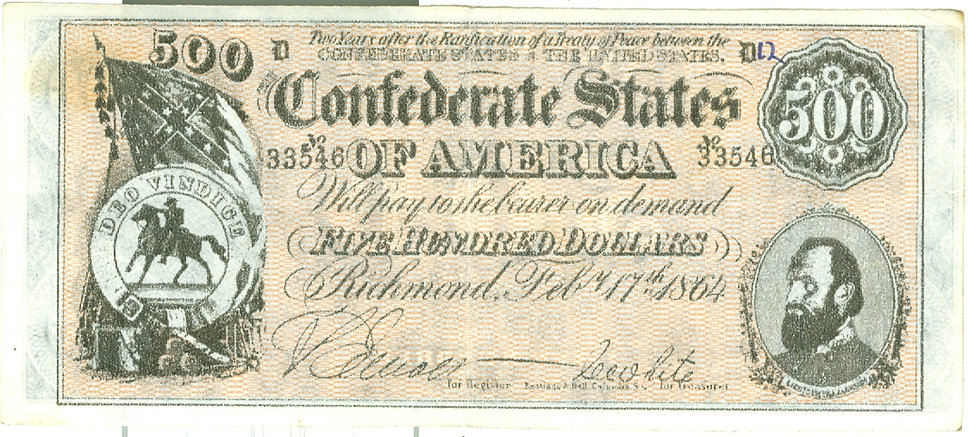 500 D Two Years after the Ratification of a Treaty of Peace between the D 12
CONFEDERATE STATES & THE UNITED STATES.
Confederate States
500
No 33546 OF AMERICA No 33546
Will pay to the bearer on demand
DEO VINDICE
FIVE HUNDRED DOLLARS
Richmond, Feby 17th 1864
for Register Keatinge & Ball Columbia S.C. for Treasurer